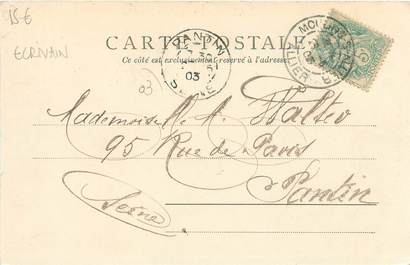 15€
ECRIVAIN
CARTE POSTALE
Ce côté est exclusivement réservé à l'adresse
PANTIN
03
SEINE
MOULINS
ALLIER
03
Mademoiselle A. Walter
95 Rue de Paris
Pantin
Seine